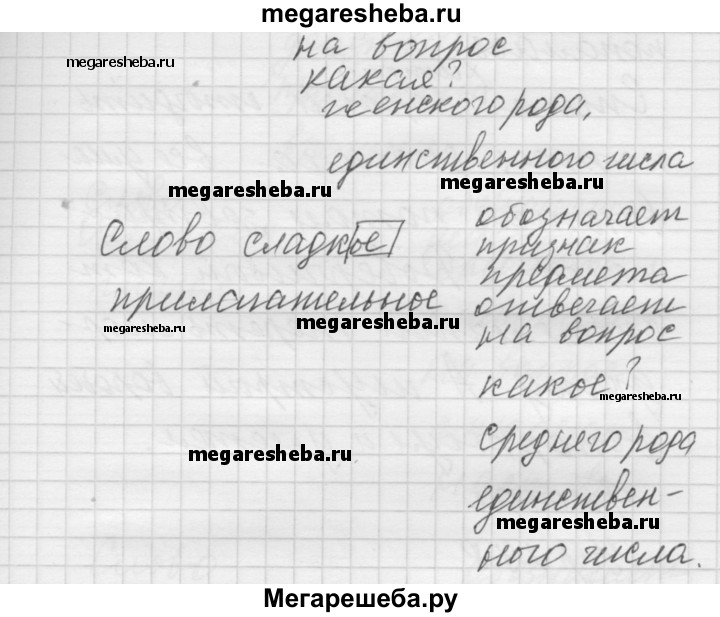 megaresheba.ru
на вопрос
megaresheba.ru
какая?
женского рода,
единственного числа
megaresheba.ru
megaresheba.ru
обозначает
Слово сладкое
признак
предмета
прилагательное
отвечает
megaresheba.ru
megaresheba.ru
на вопрос
какое?
megaresheba.ru
среднего рода
megaresheba.ru
единствен-
megaresheba.ru
ного числа.
Мегарешеба.ру